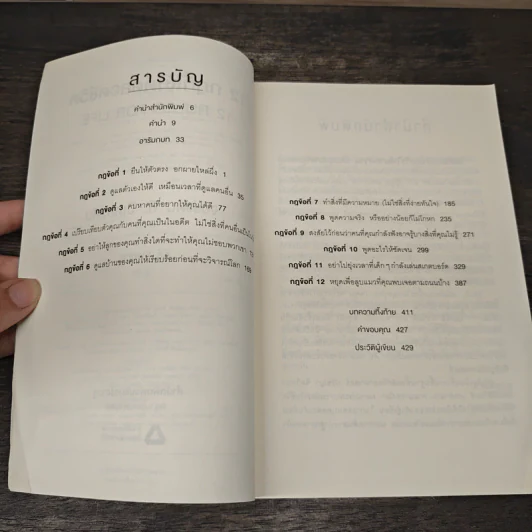 สารบัญ
คำนำสำนักพิมพ์ 6
คำนำ 9
อารัมภบท 33
กฎข้อที่ 1 ยืนให้ตัวตรง อกผายไหล่ผึ่ง 1
กฎข้อที่ 2 ดูแลตัวเองให้ดี เหมือนเวลาที่ดูแลคนอื่น 35
กฎข้อที่ 3 คบหาคนที่อยากให้คุณได้ดี 77
กฎข้อที่ 4 เปรียบเทียบตัวคุณกับคนที่คุณเป็นในอดีต ไม่ใช่สิ่งที่คนอื่นเป็นใน
กฎข้อที่ 5 อย่าให้ลูกของคุณทำสิ่งใดที่จะทำให้คุณไม่ชอบพวกเขา
กฎข้อที่ 6 ดูแลบ้านของคุณให้เรียบร้อยก่อนที่จะวิจารณ์โลก
กฎข้อที่ 7 ทำสิ่งที่มีความหมาย (ไม่ใช่สิ่งที่ง่ายทันใจ) 185
กฎข้อที่ 8 พูดความจริง หรืออย่างน้อยก็ไม่โกหก 235
กฎข้อที่ 9 สงสัยไว้ก่อนว่าคนที่คุณกำลังฟังอาจรู้บางสิ่งที่คุณไม่รู้ 271
กฎข้อที่ 10 พูดอะไรให้ชัดเจน 299
กฎข้อที่ 11 อย่าไปยุ่งเวลาที่เด็กๆ กำลังเล่นสเกตบอร์ด 329
กฎข้อที่ 12 หยุดเพื่อลูบแมวที่คุณพบเจอตามถนนบ้าง 387
บทความทิ้งท้าย 411
คำขอบคุณ 427
ประวัติผู้เขียน 429